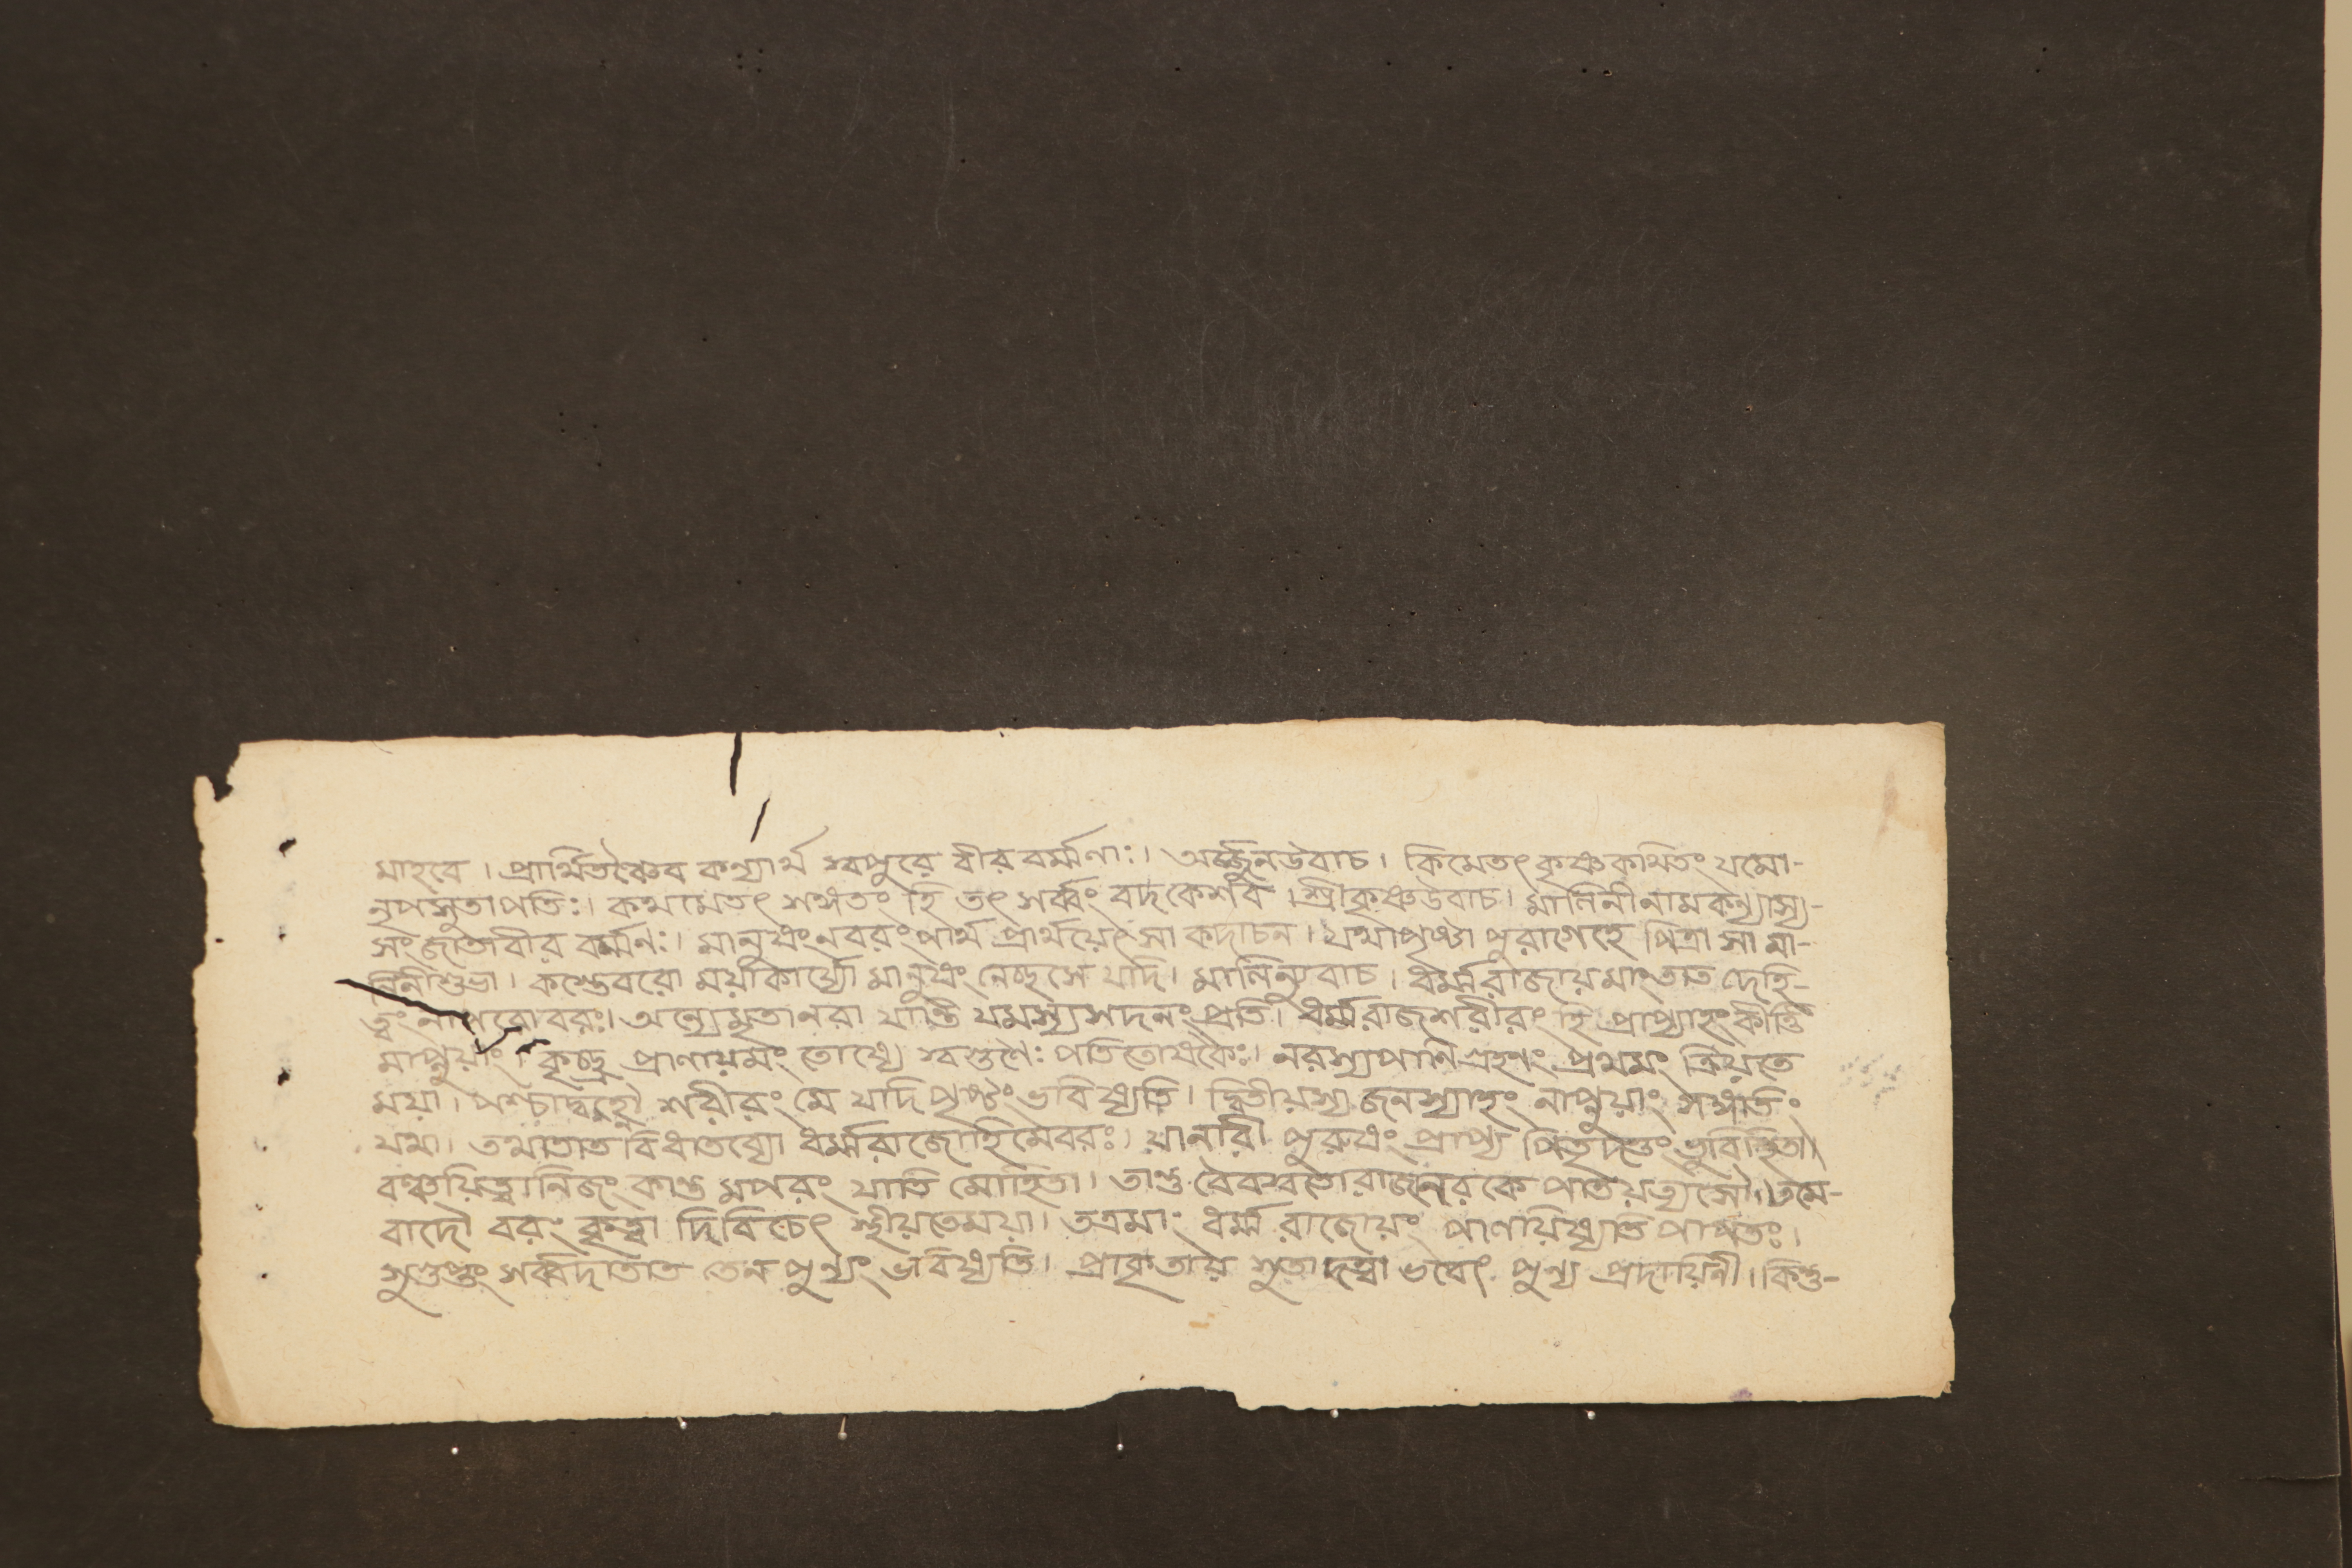 মাহবে । প্রার্থিতশ্চৈব কন্যার্থ স্বপুরে বীর বর্ম্মণাঃ । অর্জ্জুনউবাচ । কিমেতৎ কৃষ্ণকথিতং যমো-
নৃপসুতাপতিঃ । কথমেতৎ শঙ্গতং হি তৎ সর্ব্বং বদকেশব । শ্রীকৃষ্ণউবাচ । মালিনীনামকন্যাস্য-
সংজাতাবীর বর্ম্মণঃ । মানুষংনবরং পার্থ প্রার্থয়েৎ সা কদাচন । যথাপৃষ্টা পুরাগেহে পিত্রা সা মা-
লিনীশুভা । কস্তেবরো ময়াকার্য্যো মানুষং নেচ্ছসে যদি । মালিন্যুবাচ । ধর্ম্মরাজায়মাংতাত দেহি-
ত্বং নাপরোবরঃ । অন্যেমৃতানরা যান্তি যমস্যসদনং প্রতি । ধর্ম্মরাজশরীরং হি প্রাপ্যাহংকীর্ত্তি
মাপ্নুয়াং । কৃচ্ছ্র প্রাণায়মং তোথ্যে স্বগুণৈঃ পতিতোষকৈঃ । নরস্যপাণি গ্রহণং প্রথমং ক্রিয়তে
ময়া । পশ্চাদ্বহ্নৌ শরীরং মে যদিপৃষ্টং ভবিষ্যতি । দ্বিতীয়স্য জনস্যাহং নাপ্নুয়াং সঙ্গতিং
যমা । তথাতাত বিধাতব্যো ধর্ম্মরাজোহিমেবরঃ । যানারী পুরুষং প্রাপ্য পিতৃদত্তং ভুবিস্থিতা
বঞ্চয়িত্বানিজং কান্ত মপরং যাতি মোহিতা । তান্তু বৈবস্বতোরাজনরকে পাতয়ত্যসৌ । তমে-
বাদৌ বরং কৃত্বা দিবিচেৎ স্থীয়তেময়া । তত্রমাং ধর্ম্ম রাজোয়ং পাণয়িষ্যতি পাপতঃ ।
গুপ্ততং সর্ব্বদাতাত তেন পুণ্যং ভবিষ্যতি । প্রাকৃতায় সুতাদত্ত্বা ভবেৎ পুণ্য প্রদায়িনী । কিন্তু-